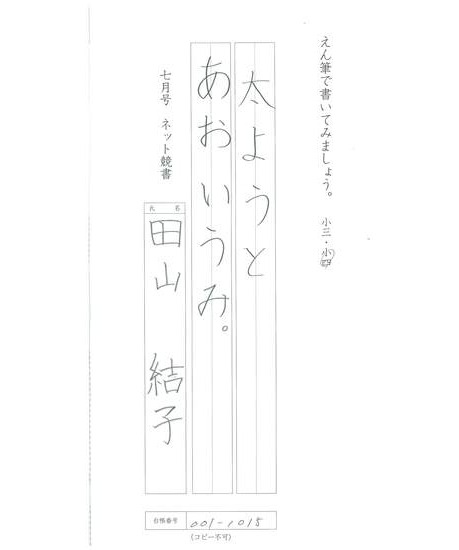 えん筆で書いてみましょう。
小三・小四
太ようと
あおいうみ。
七月号 ネット競書
氏名
田山 結子
台帳番号 001-1015
(コピー不可)